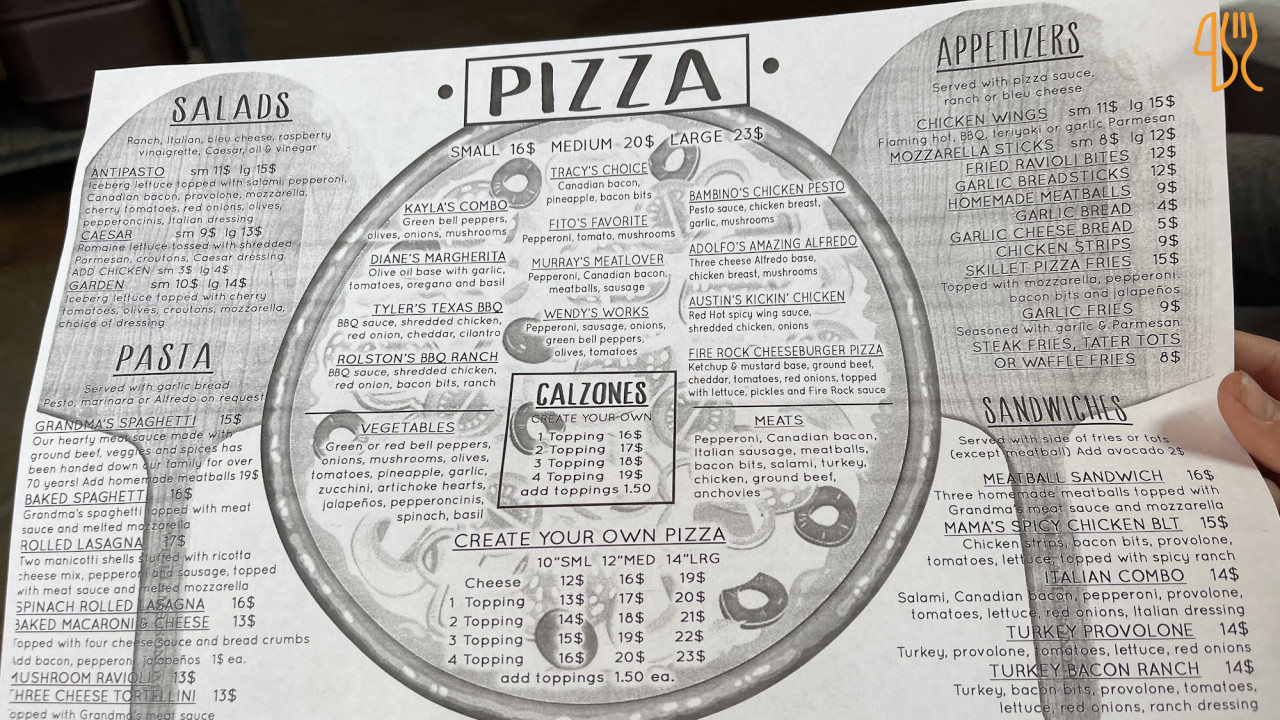 SALADS
Ranch, Italian, bleu cheese, raspberry
vinaigrette, Caesar, oil & vinegar
ANTIPASTO sm 11$ lg 15$
Iceberg lettuce topped with salami, pepperoni,
Canadian bacon, provolone, mozzarella,
cherry tomatoes, red onions, olives,
pepperoncinis, Italian dressing
CAESAR sm 9$ lg 13$
Romaine lettuce tossed with shredded
Parmesan, croutons, Caesar dressing
ADD CHICKEN sm 3$ lg 4$
GARDEN sm 10$ lg 14$
Iceberg lettuce topped with cherry
tomatoes, olives, croutons, mozzarella,
choice of dressing
PASTA
Served with garlic bread
Pesto, marinara or Alfredo on request
GRANDMA'S SPAGHETTI 15$
Our hearty meat sauce made with
ground beef, veggies and spices has
been handed down our family for over
70 years! Add homemade meatballs 19$
BAKED SPAGHETTI 16$
Grandma's spaghetti topped with meat
sauce and melted mozzarella
ROLLED LASAGNA 17$
Two manicotti shells stuffed with ricotta
cheese mix, pepperoni and sausage, topped
with meat sauce and melted mozzarella
SPINACH ROLLED LASAGNA 16$
BAKED MACARONI & CHEESE 13$
Topped with four cheese sauce and bread crumbs
Add bacon, pepperoni, jalapeños 1$ ea.
MUSHROOM RAVIOLI 13$
THREE CHEESE TORTELLINI 13$
opped with Grandma's meat sauce
• PIZZA •
SMALL 16$ MEDIUM 20$ LARGE 23$
KAYLA'S COMBO
Green bell peppers,
olives, onions, mushrooms
DIANE'S MARGHERITA
Olive oil base with garlic,
tomatoes, oregano and basil
TYLER'S TEXAS BBQ
BBQ sauce, shredded chicken,
red onion, cheddar, cilantro
ROLSTON'S BBQ RANCH
BBQ sauce, shredded chicken,
red onion, bacon bits, ranch
TRACY'S CHOICE
Canadian bacon,
pineapple, bacon bits
FITO'S FAVORITE
Pepperoni, tomato, mushrooms
MURRAY'S MEATLOVER
Pepperoni, Canadian bacon,
meatballs, sausage
WENDY'S WORKS
Pepperoni, sausage, onions,
green bell peppers,
olives, tomatoes
BAMBINO'S CHICKEN PESTO
Pesto sauce, chicken breast,
garlic, mushrooms
ADOLFO'S AMAZING ALFREDO
Three cheese Alfredo base,
chicken breast, mushrooms
AUSTIN'S KICKIN' CHICKEN
Red Hot spicy wing sauce,
shredded chicken, onions
FIRE ROCK CHEESEBURGER PIZZA
Ketchup & mustard base, ground beef,
cheddar, tomatoes, red onions, topped
with lettuce, pickles and Fire Rock sauce
VEGETABLES
Green or red bell peppers,
onions, mushrooms, olives,
tomatoes, pineapple, garlic,
zucchini, artichoke hearts,
jalapeños, pepperoncinis,
spinach, basil
CALZONES
CREATE YOUR OWN
1 Topping 16$
2 Topping 17$
3 Topping 18$
4 Topping 19$
add toppings 1.50
MEATS
Pepperoni, Canadian bacon,
Italian sausage, meatballs,
bacon bits, salami, turkey,
chicken, ground beef,
anchovies
CREATE YOUR OWN PIZZA
10"SML 12"MED 14"LRG
Cheese 12$ 16$ 19$
1 Topping 13$ 17$ 20$
2 Topping 14$ 18$ 21$
3 Topping 15$ 19$ 22$
4 Topping 16$ 20$ 23$
add toppings 1.50 ea.
APPETIZERS
Served with pizza sauce,
ranch or bleu cheese
CHICKEN WINGS sm 11$ lg 15$
Flaming hot, BBQ, teriyaki or garlic Parmesan
MOZZARELLA STICKS sm 8$ lg 12$
FRIED RAVIOLI BITES 12$
GARLIC BREADSTICKS 12$
HOMEMADE MEATBALLS 9$
GARLIC BREAD 4$
GARLIC CHEESE BREAD 5$
CHICKEN STRIPS 9$
SKILLET PIZZA FRIES 15$
Topped with mozzarella, pepperoni,
bacon bits and jalapeños
GARLIC FRIES 9$
Seasoned with garlic & Parmesan
STEAK FRIES, TATER TOTS
OR WAFFLE FRIES 8$
SANDWICHES
Served with side of fries or tots
(except meatball) Add avocado 2$
MEATBALL SANDWICH 16$
Three homemade meatballs topped with
Grandma's meat sauce and mozzarella
MAMA'S SPICY CHICKEN BLT 15$
Chicken strips, bacon bits, provolone,
tomatoes, lettuce, topped with spicy ranch
ITALIAN COMBO 14$
Salami, Canadian bacon, pepperoni, provolone,
tomatoes, lettuce, red onions, Italian dressing
TURKEY PROVOLONE 14$
Turkey, provolone, tomatoes, lettuce, red onions
TURKEY BACON RANCH 14$
Turkey, bacon bits, provolone, tomatoes,
lettuce, red onions, ranch dressing